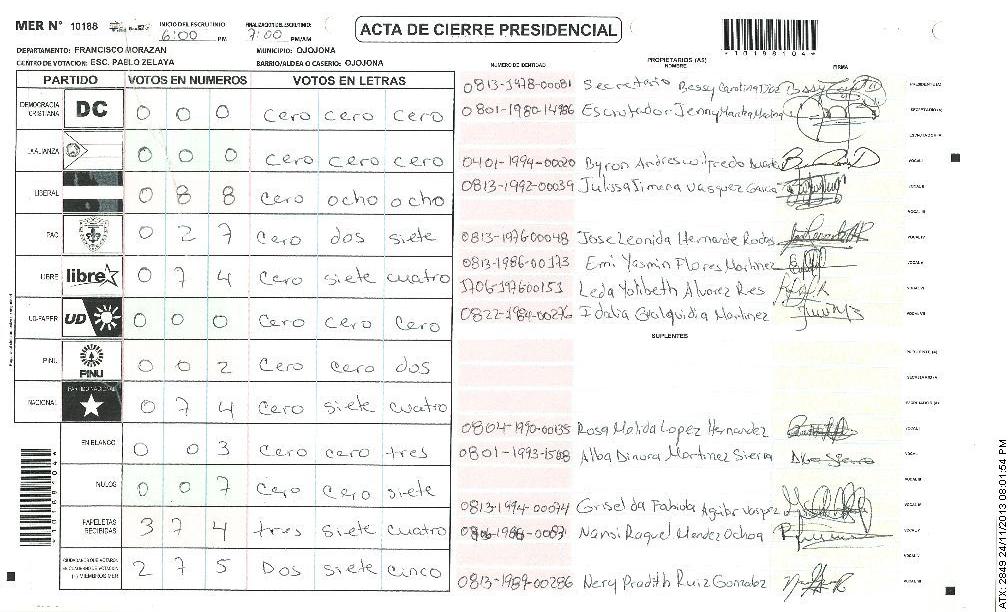 MER N° 10188 INICIO DEL ESCRUTINIO 6:00 PM FINALIZACION DEL ESCRUTINIO: 7:00 PM/AM
ACTA DE CIERRE PRESIDENCIAL
*10188104*
DEPARTAMENTO: FRANCISCO MORAZAN MUNICIPIO: OJOJONA
CENTRO DE VOTACION: ESC. PABLO ZELAYA BARRIO/ALDEA O CASERIO: OJOJONA
PARTIDO VOTOS EN NUMEROS VOTOS EN LETRAS
DEMOCRACIA CRISTIANA DC 0 0 0 cero cero cero
LA ALIANZA 0 0 0 cero cero cero
LIBERAL 0 8 8 cero ocho ocho
PAC 0 2 7 cero dos siete
LIBRE libre 0 7 4 cero siete cuatro
UD-FAPER UD 0 0 0 cero cero cero
PINU PINU 0 0 2 cero cero dos
NACIONAL PARTIDO NACIONAL 0 7 4 cero siete cuatro
EN BLANCO 0 0 3 cero cero tres
NULOS 0 0 7 cero cero siete
PAPELETAS RECIBIDAS 3 7 4 tres siete cuatro
CIUDADANOS QUE VOTARON EN CUADERNO DE VOTACION (+) MIEMBROS MER 2 7 5 Dos siete cinco
NUMERO DE IDENTIDAD PROPIETARIOS (AS) NOMBRE FIRMA
0813-1978-00081 Secretario Bessy Carolina PRESIDENTE (A)
0801-1980- Escrutador Jenny SECRETARIO (A)
ESCRUTADOR A
0401-1994-00020 Byron Andres Wilfredo VOCAL I
0813-1992-00039 Julissa Jimena Vasquez Garcia VOCAL II
VOCAL III
0813-1976-00048 Jose Leonida Hernande Rodas VOCAL IV
0813-1986-00173 Emi Yasmin Flores Martinez VOCAL V
1706-197600153 Leda Yolibeth Alvorez Res VOCAL VI
0822-1984-00276 Idalia Gualquidia Martinez VOCAL VII
SUPLENTES
PRESIDENTE (A)
SECRETARIO (A)
ESCRUTADOR (A)
0804-1990-00135 Rosa Melida Lopez Hernandez VOCAL I
0801-1993- Alba Dinora Martinez Sierra VOCAL II
VOCAL III
0813-1994-00074 Griselda Fabiola Aguilar Vasquez VOCAL IV
Nansi Raquel Mendez Ochoa VOCAL V
VOCAL VI
0813-1989-00286 Nery Pradith Ruiz Gonzalez VOCAL VII
*10188104*
ATX: 2849 24/11/2013 08:01:54 PM